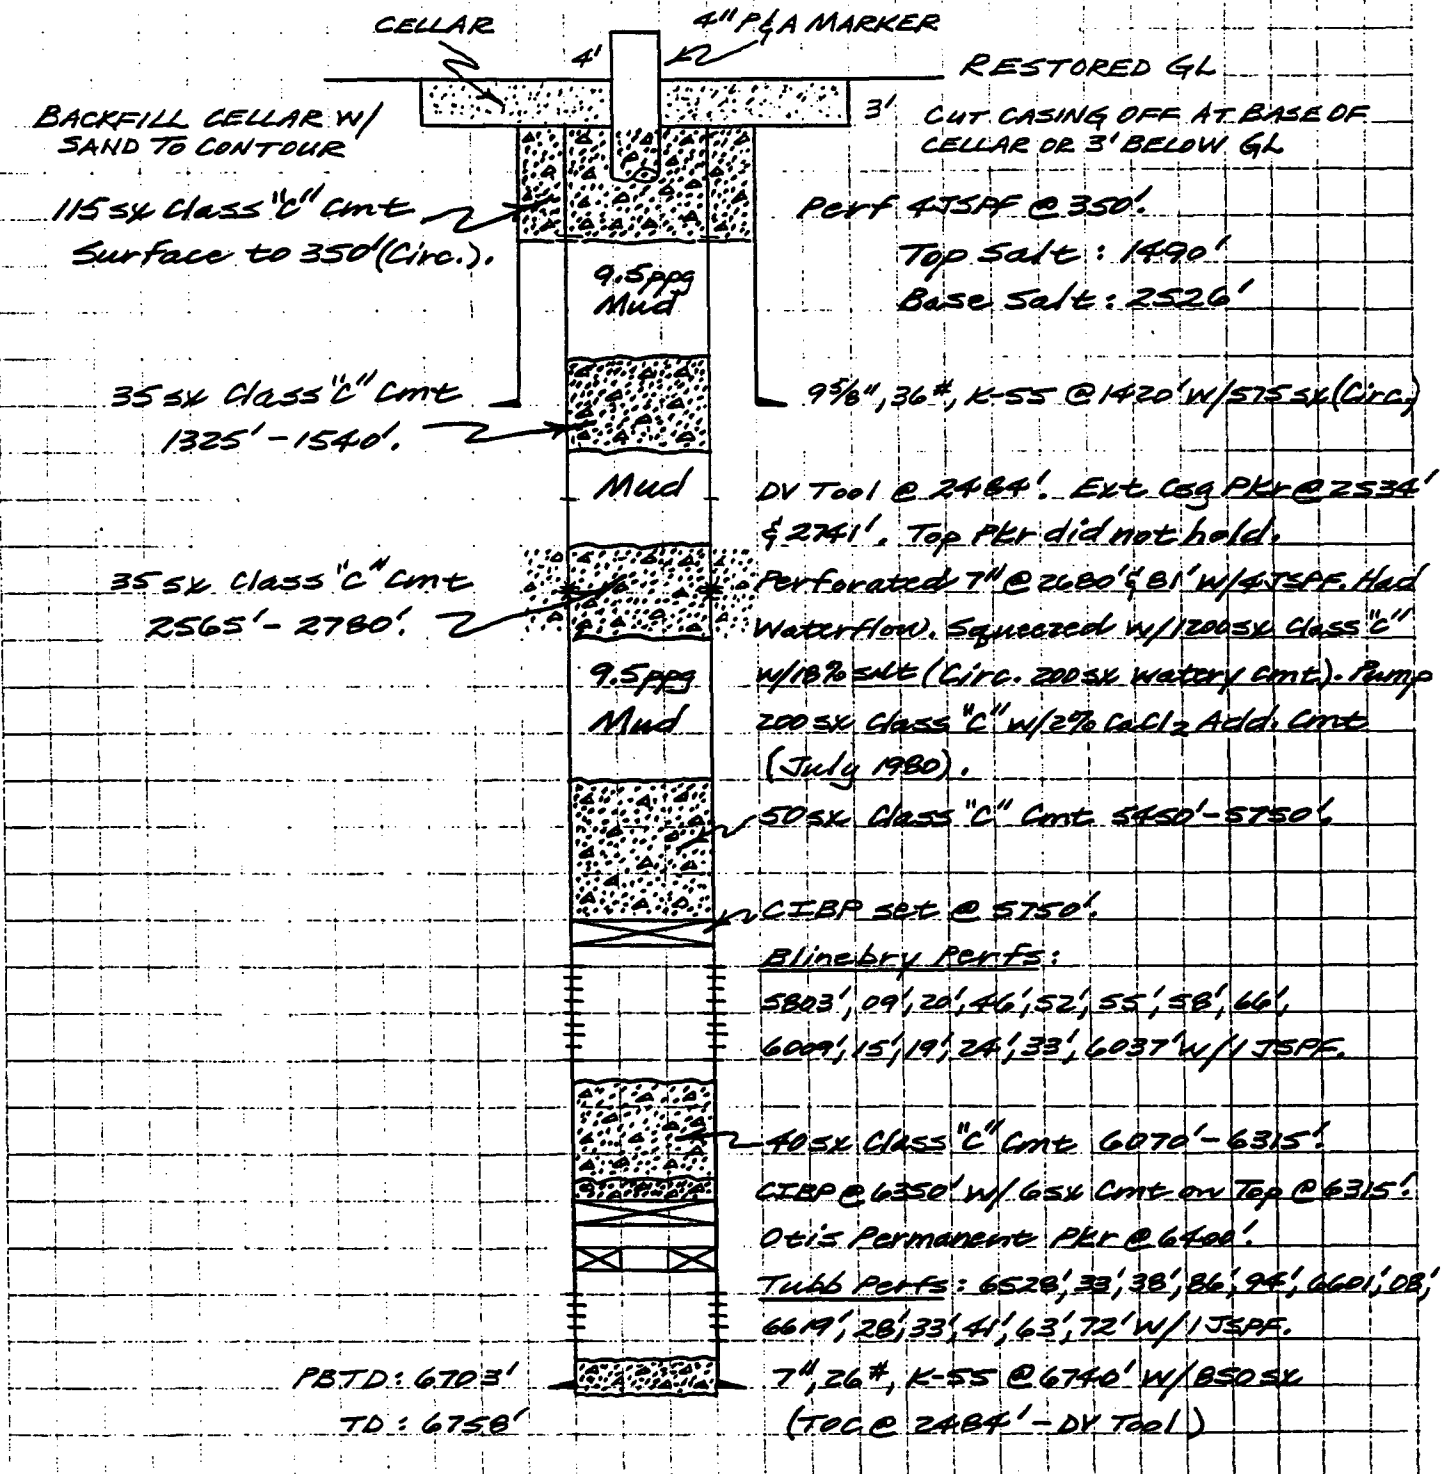 CELLAR
4" P&A MARKER
4'
RESTORED GL
BACKFILL CELLAR W/
SAND TO CONTOUR
3'
CUT CASING OFF AT BASE OF
CELLAR OR 3' BELOW GL
115 sx Class "C" Cmt
Surface to 350' (Circ.).
Perf 4JSPF @ 350'.
Top Salt: 1490'
Base Salt: 2526'
9.5 ppg
Mud
35 sx Class "C" Cmt
1325' - 1540'.
9 5/8", 36#, K-55 @ 1420' w/575 sx (Circ.)
Mud
DV Tool @ 2484'. Ext Csg Pkr @ 2534'
& 2741'. Top Pkr did not hold.
35 sx Class "C" Cmt
2565' - 2780'.
Perforated 7" @ 2680' & 81' w/4 JSPF. Had
Waterflow. Squeezed w/1200 sx Class "C"
w/18% salt (Circ. 200 sx watery cmt). Pump
200 sx Class "C" w/2% CaCl2 Add. Cmt
(July 1980).
9.5 ppg
Mud
50 sx Class "C" Cmt 5450' - 5750'.
CIBP set @ 5750'.
Blinebry Perfs:
5803', 09', 20', 46', 52', 55', 58', 66',
6009', 15', 19', 24', 33', 6037' w/1 JSPF.
40 sx Class "C" Cmt 6070' - 6315'.
CIBP @ 6350' w/ 6 sx Cmt on Top @ 6315'.
Otis Permanent Pkr @ 6400'.
Tubb Perfs: 6528', 33', 38', 86', 94', 6601', 08',
6619', 28', 33', 41', 63', 72' w/1 JSPF.
PBTD: 6703'
TD: 6758'
7", 26#, K-55 @ 6740' w/850 sx
(TOC @ 2484' - DV Tool)